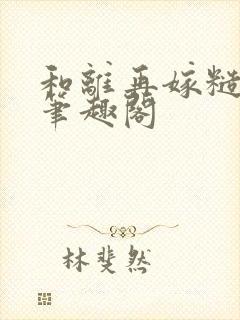 和離再嫁糙
筆趣閣
林斐然